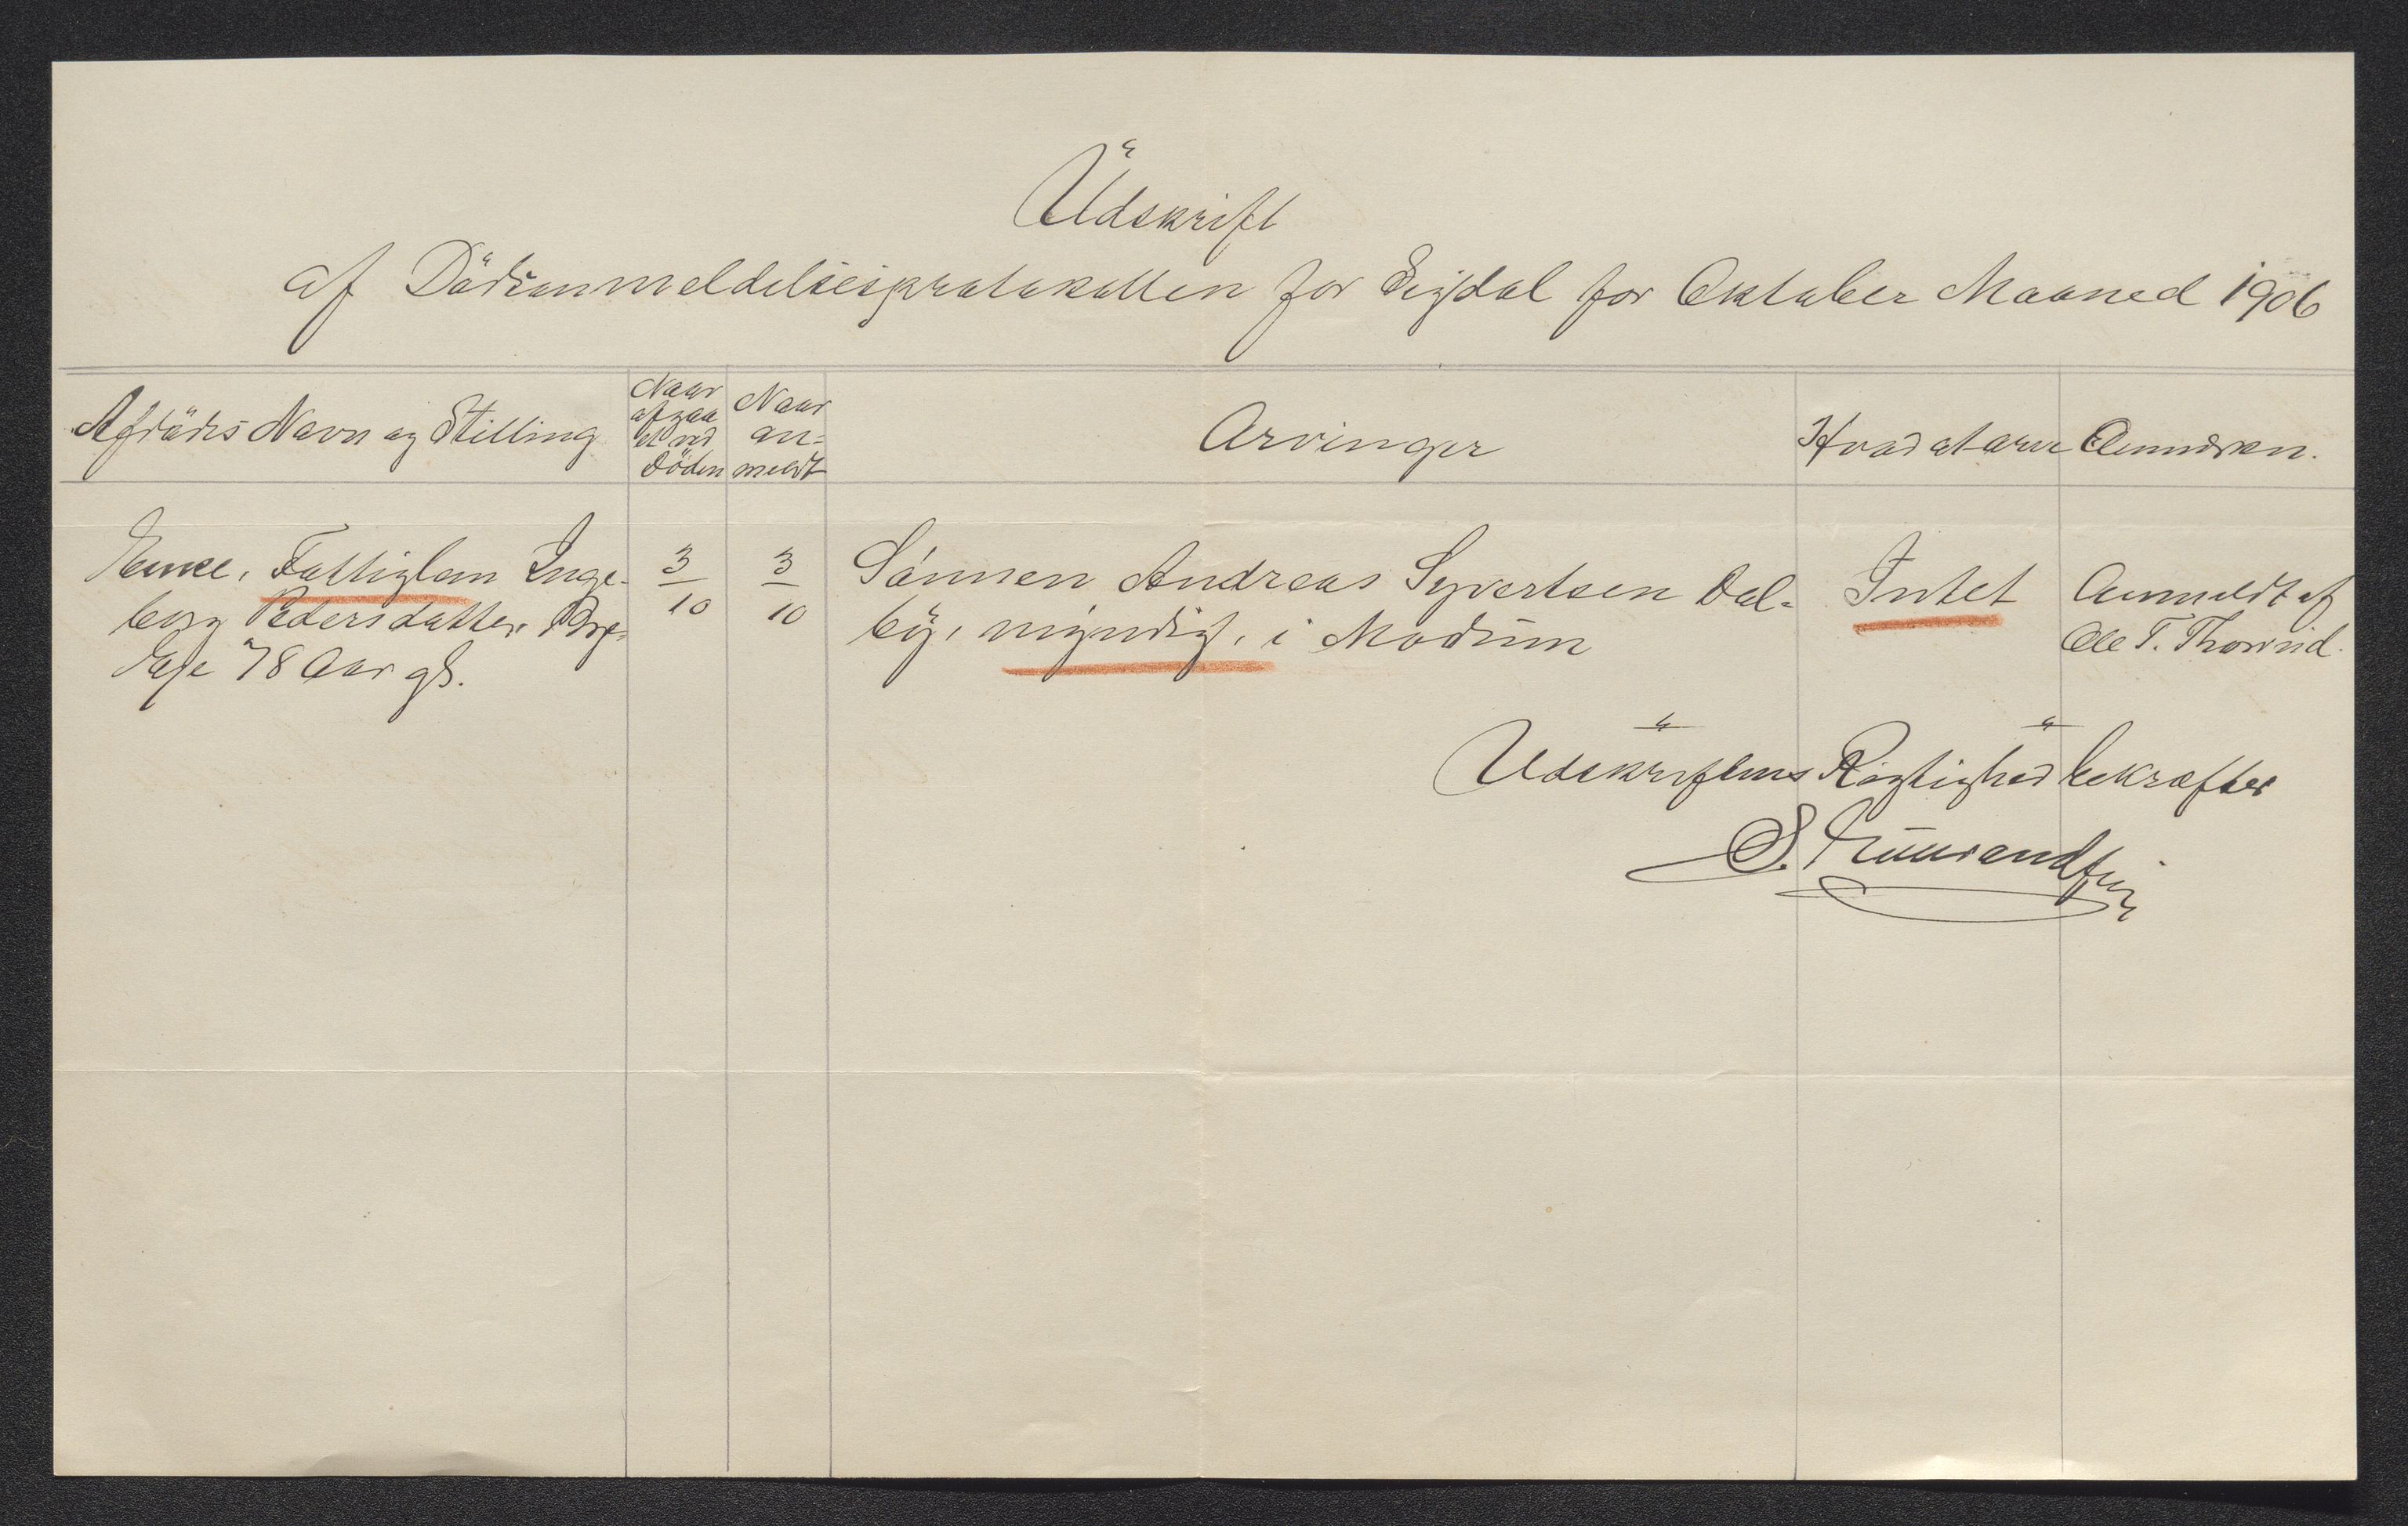 Udskrift
af Dödsanmeldelsesprotokollen for Sigdal for Oktober Maaned 1906
Afdödes Navn og Stilling
Naar
afgaa
et ved
Döden
Naar
an-
meldt
Arvinger
Hvad at arve
Anmærkn.
Enke, Fattiglem Inge-
borg Pedersdatter,
Eje 78 Aar gl.
3
10
3
10
Sönnen Andreas Syvertsen Dal-
by, myndig, i Modum
Intet
Anmeldt af
Ole T.
Udskriftens Rigtighed bekræfter
S.